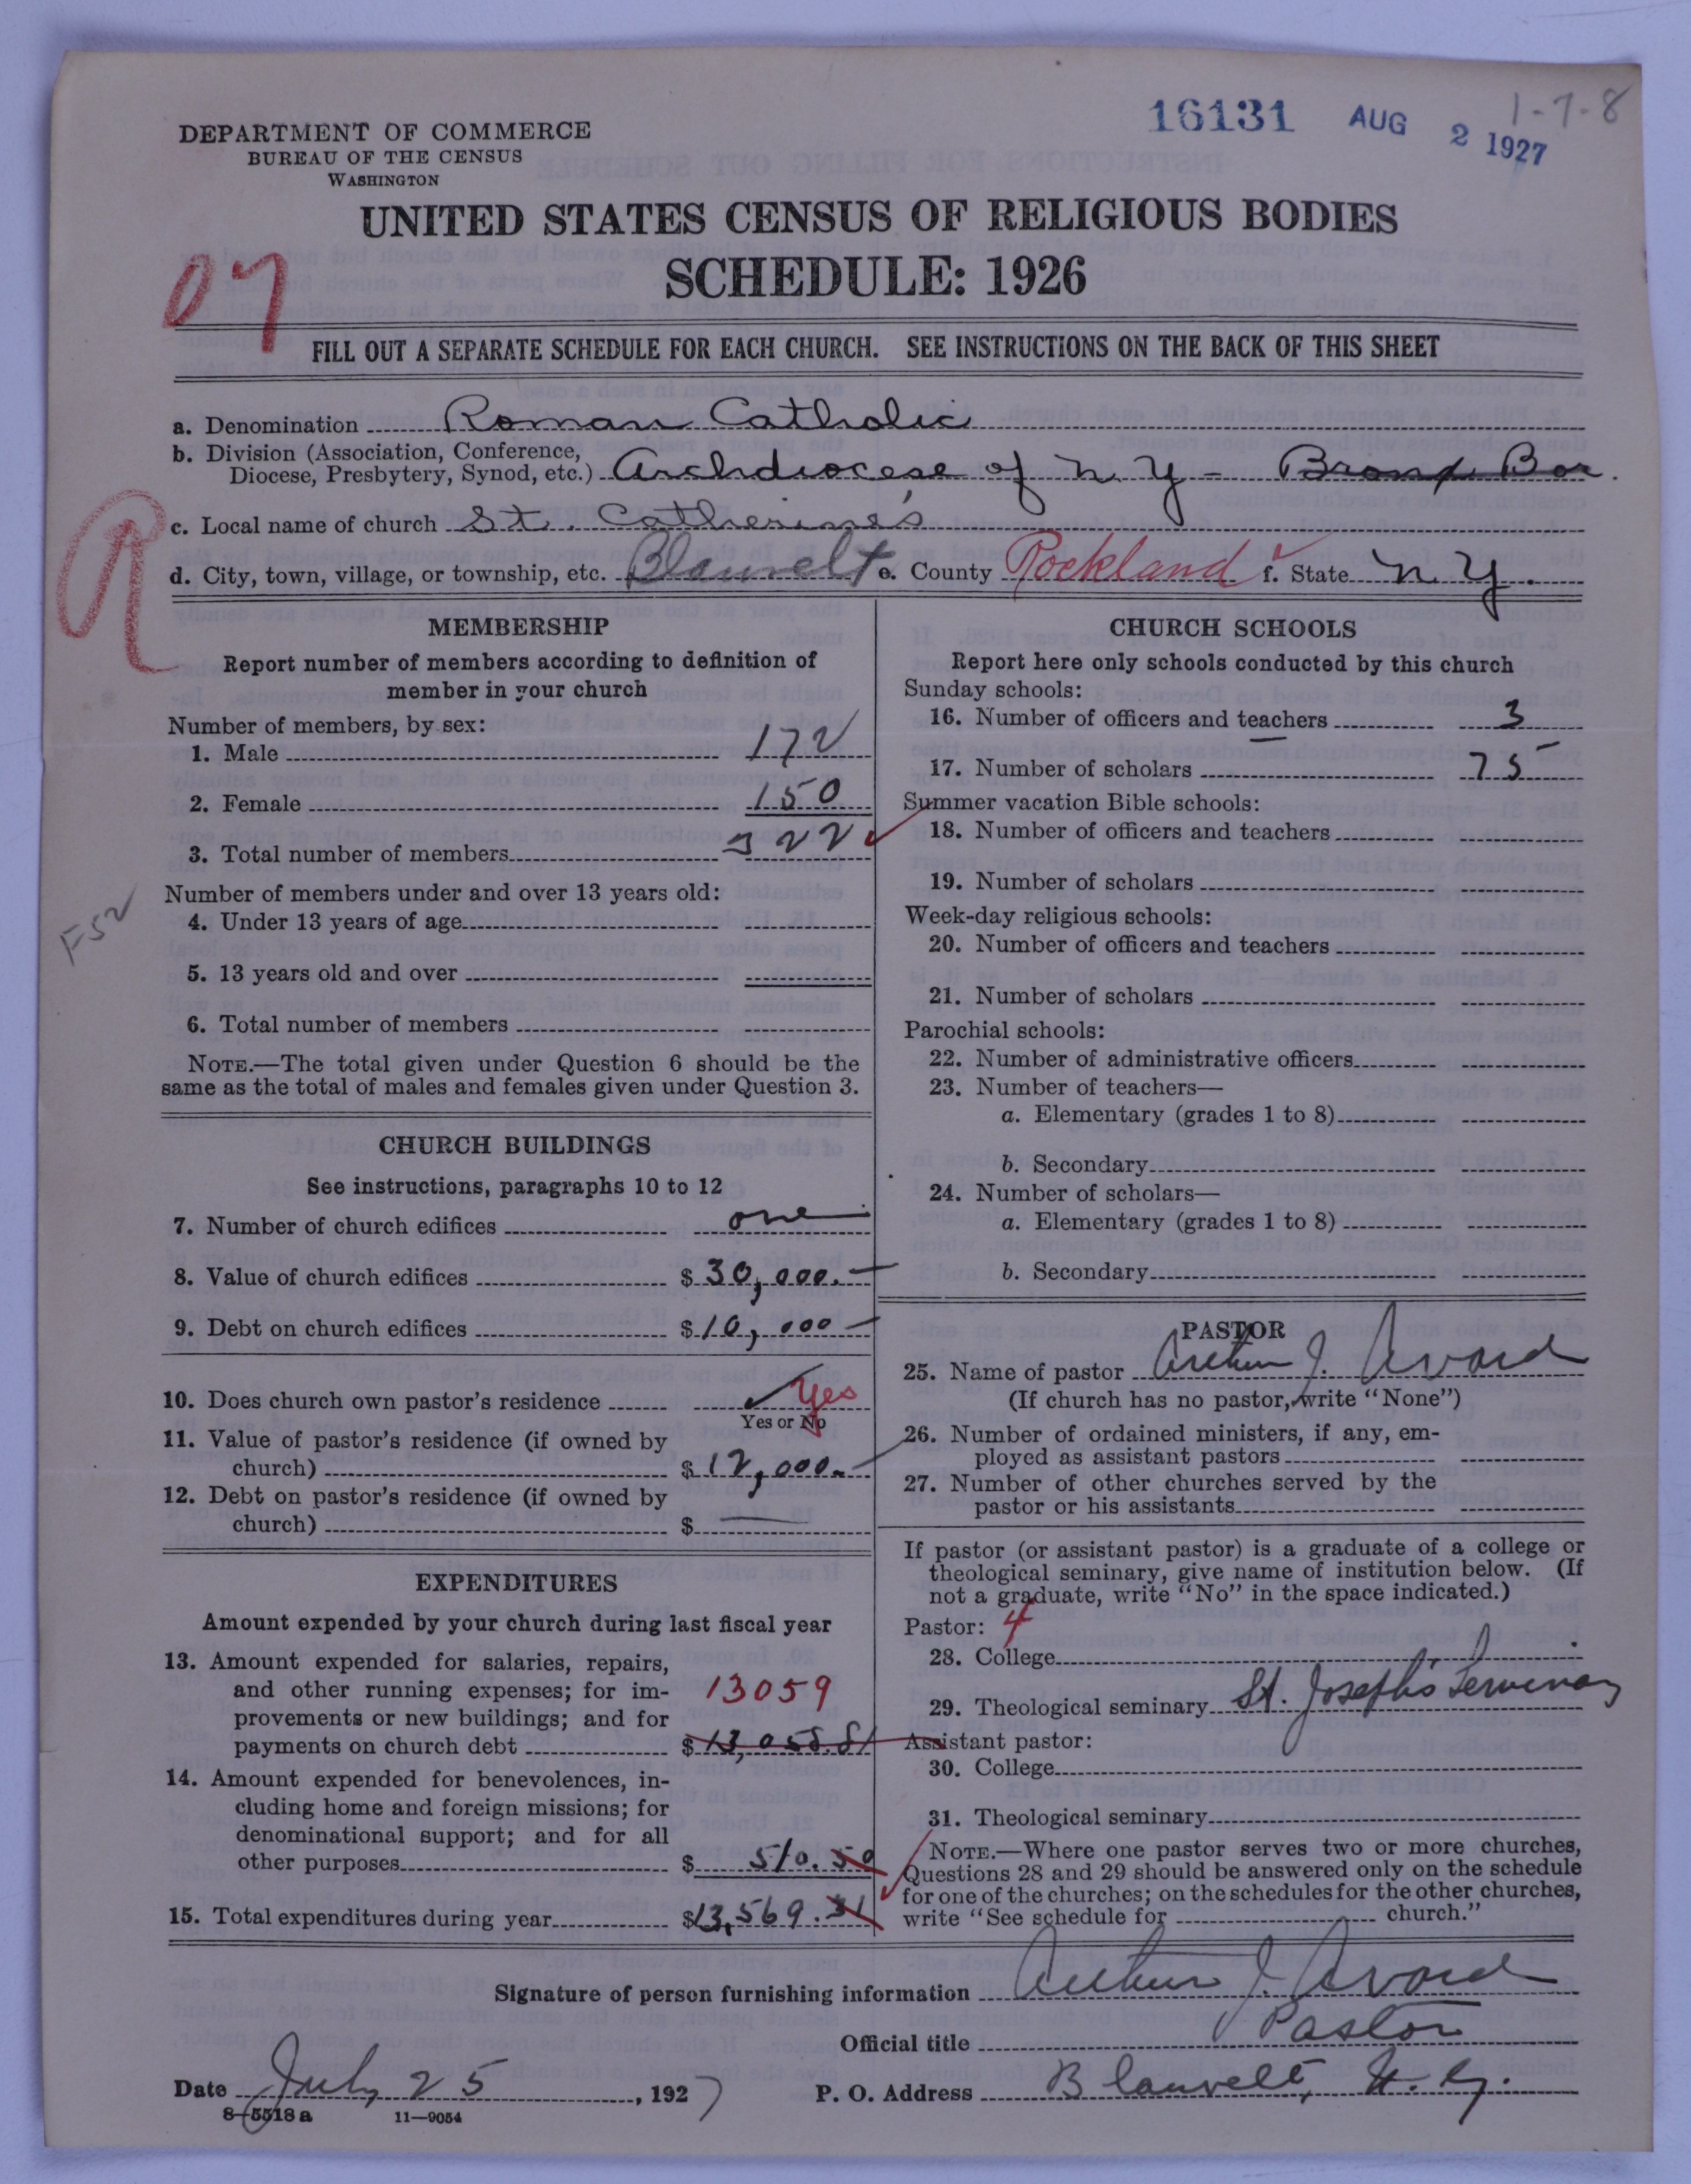 16131 AUG 2 1927 1-7-8
DEPARTMENT OF COMMERCE
BUREAU OF THE CENSUS
WASHINGTON
UNITED STATES CENSUS OF RELIGIOUS BODIES
SCHEDULE: 1926
07
FILL OUT A SEPARATE SCHEDULE FOR EACH CHURCH. SEE INSTRUCTIONS ON THE BACK OF THIS SHEET
a. Denomination Roman Catholic
b. Division (Association, Conference,
Diocese, Presbytery, Synod, etc.) Archdiocese of N Y - Bronx Bor.
c. Local name of church St. Catherine's
d. City, town, village, or township, etc. Blauvelt e. County Rockland f. State N. Y.
R
MEMBERSHIP
Report number of members according to definition of
member in your church
Number of members, by sex:
1. Male 172
2. Female 150
3. Total number of members 322
Number of members under and over 13 years old:
4. Under 13 years of age
5. 13 years old and over
6. Total number of members
NOTE.—The total given under Question 6 should be the
same as the total of males and females given under Question 3.
CHURCH BUILDINGS
See instructions, paragraphs 10 to 12
7. Number of church edifices one
8. Value of church edifices $ 30,000.
9. Debt on church edifices $ 10,000
10. Does church own pastor's residence Yes
Yes or No
11. Value of pastor's residence (if owned by
church) $ 12,000.
12. Debt on pastor's residence (if owned by
church) $ —
EXPENDITURES
Amount expended by your church during last fiscal year
13. Amount expended for salaries, repairs,
and other running expenses; for im- 13059
provements or new buildings; and for
payments on church debt $ 13,058.81
14. Amount expended for benevolences, in-
cluding home and foreign missions; for
denominational support; and for all
other purposes $ 510.50
15. Total expenditures during year $ 13,569.31
CHURCH SCHOOLS
Report here only schools conducted by this church
Sunday schools:
16. Number of officers and teachers 3
17. Number of scholars 75
Summer vacation Bible schools:
18. Number of officers and teachers
19. Number of scholars
Week-day religious schools:
20. Number of officers and teachers
21. Number of scholars
Parochial schools:
22. Number of administrative officers
23. Number of teachers—
a. Elementary (grades 1 to 8)
b. Secondary
24. Number of scholars—
a. Elementary (grades 1 to 8)
b. Secondary
PASTOR
25. Name of pastor Arthur J. Avard
(If church has no pastor, write "None")
26. Number of ordained ministers, if any, em-
ployed as assistant pastors
27. Number of other churches served by the
pastor or his assistants
If pastor (or assistant pastor) is a graduate of a college or
theological seminary, give name of institution below. (If
not a graduate, write "No" in the space indicated.)
Pastor: 4
28. College
29. Theological seminary St. Joseph's Seminary
Assistant pastor:
30. College
31. Theological seminary
NOTE.—Where one pastor serves two or more churches,
Questions 28 and 29 should be answered only on the schedule
for one of the churches; on the schedules for the other churches,
write "See schedule for church."
Signature of person furnishing information Arthur J. Avard
Official title Pastor
Date July 25, 1927 P. O. Address Blauvelt, N. Y.
8-5518 a 11—9054